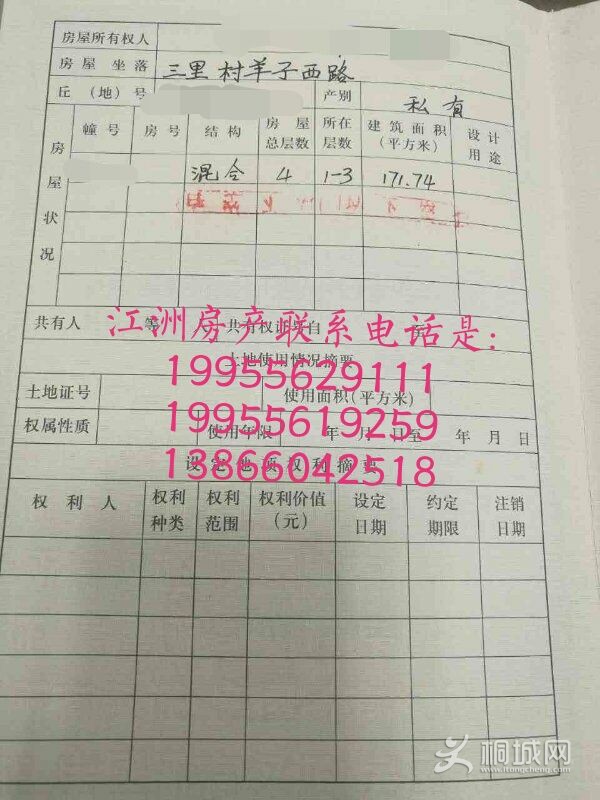 房屋所有权人
房屋 坐落 三里村羊子西路
丘（地）号 产别 私有
房屋状况
幢号 房号 结构 房屋总层数 所在层数 建筑面积（平方米） 设计用途
混合 4 1-3 171.74
共有人 等 人 共有权证号自
江洲房产联系电话是：
土地使用情况摘要
19955629111
土地证号 使用面积（平方米）
19955619259
权属性质 使用年限 年 月 日至 年 月 日
13866042518
设定他项权利摘要
权利人 权利种类 权利范围 权利价值（元） 设定日期 约定期限 注销日期
桐城网
www.itongcheng.com